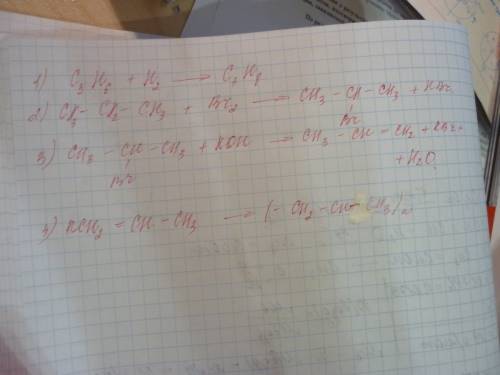 1) C3H6 + H2 → C3H8
2) CH3 - CH2 - CH3 + Br2 → CH3 - CH - CH3 + HBr
Br
3) CH3 - CH - CH3 + KOH → CH3 - CH = CH2 + KBr +
Br
+ H2O
4) nCH2 = CH - CH3 → (- CH2 - CH - CH3)n